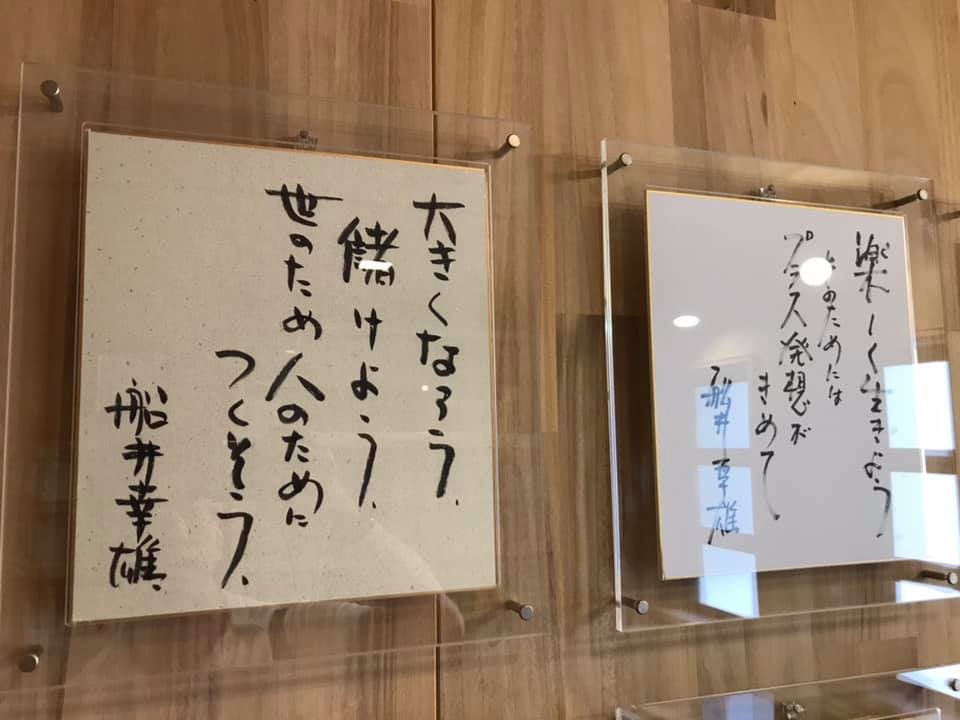 大きくなろう、
儲けよう、
世のため人のために
つくそう、
船井幸雄、
楽しく生きよう
そのためには
プラス発想が
きめて、
船井幸雄